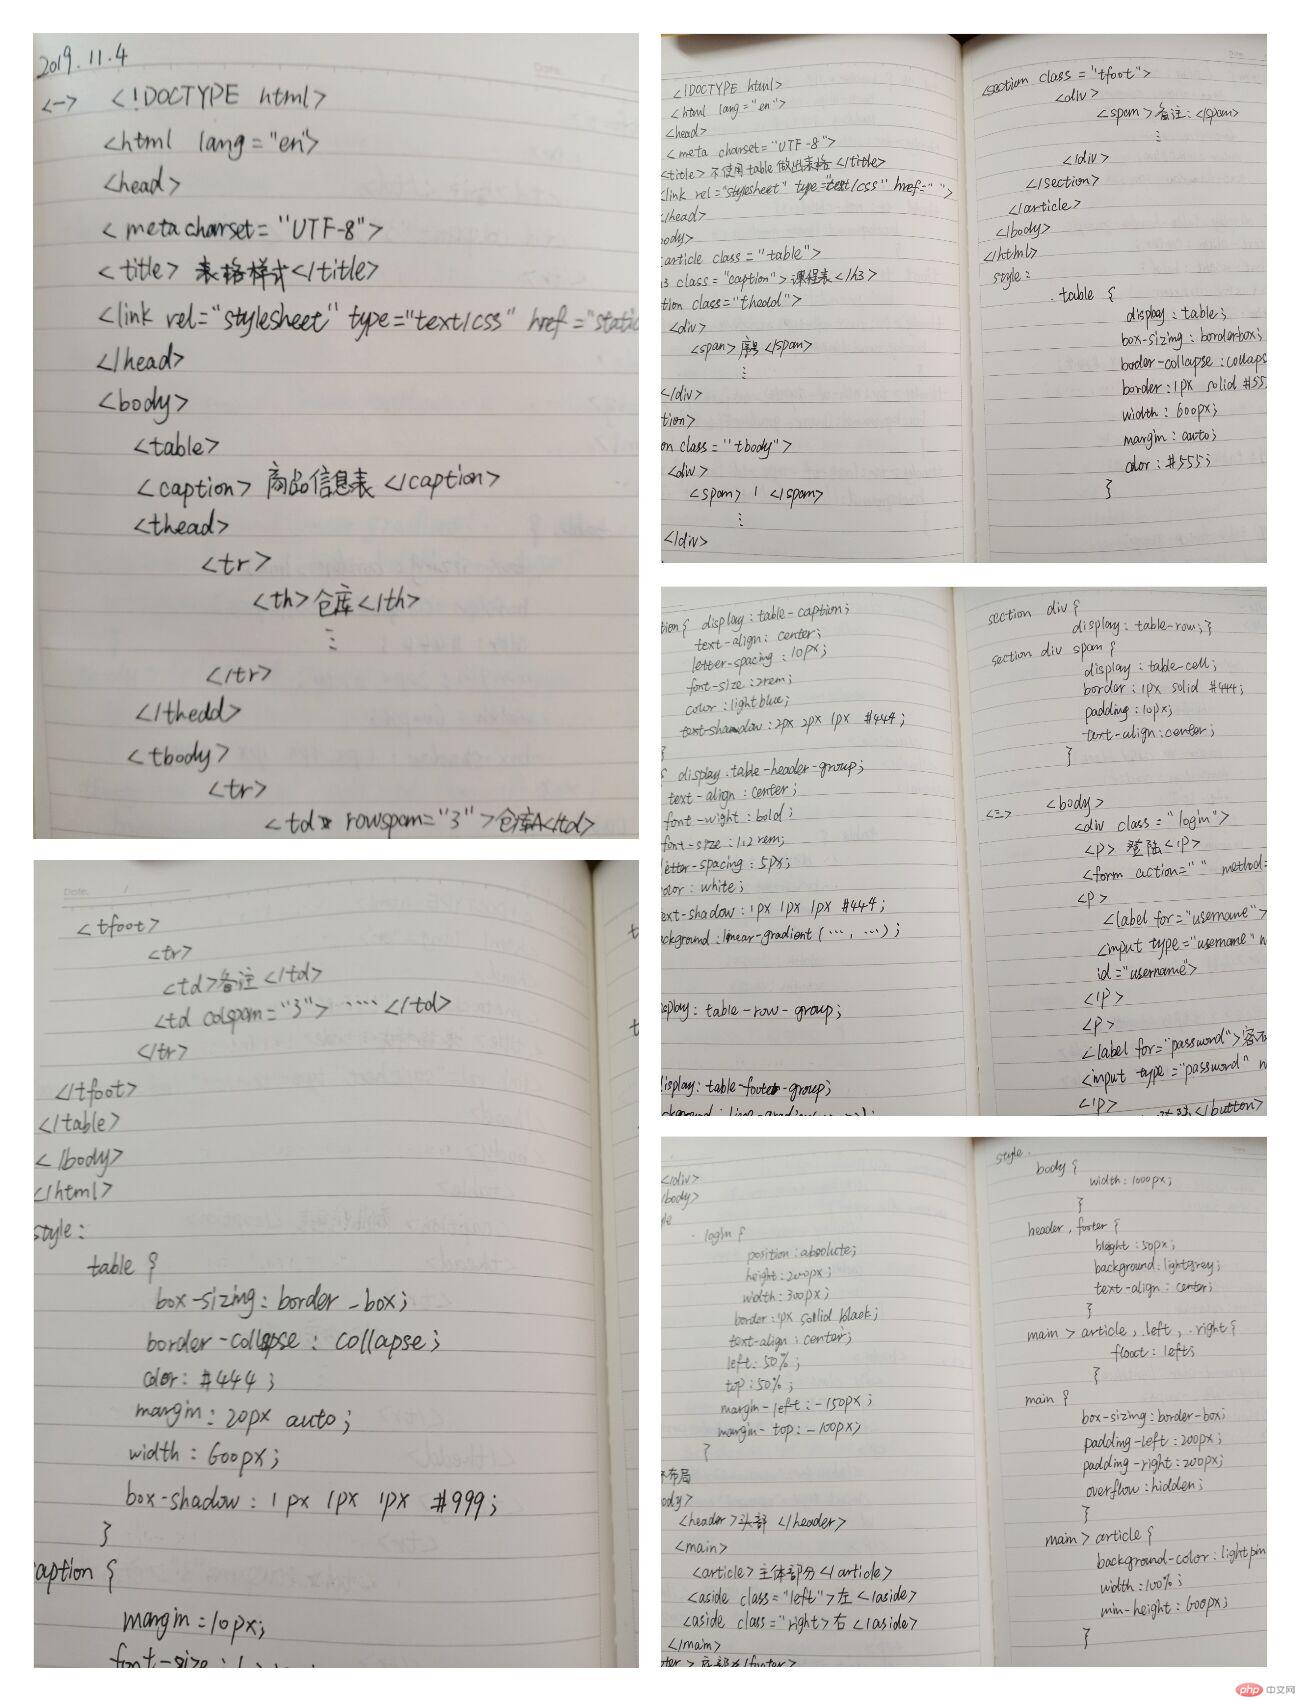 2019.11.4
<一> <!DOCTYPE html>
<html lang="en">
<head>
<meta charset="UTF-8">
<title>表格样式</title>
<link rel="stylesheet" type="text/css" href="static
</head>
<body>
<table>
<caption>商品信息表</caption>
<thead>
<tr>
<th>仓库</th>
⋮
</tr>
</thedd>
<tbody>
<tr>
<td rowspam="3">仓库A</td>
Date. /
<tfoot>
<tr>
<td>备注</td>
<td colspam="3">……</td>
</tr>
</tfoot>
</table>
</body>
</html>
style:
table {
box-sizing: border-box;
border-collapse: collapse;
color: #444;
margin: 20px auto;
width: 600px;
box-shadow: 1px 1px 1px #999;
}
aption {
margin: 10px;
font-size:
<!DOCTYPE html>
<html lang="en">
<head>
<meta charset="UTF-8">
<title>不使用table做出表格</title>
<link rel="stylesheet" type="text/css" href=" ">
</head>
body>
article class="table">
3 class="caption">课程表</h3>
tion class="thedd">
<div>
<span>序号</span>
⋮
</div>
tion>
on class="tbody">
<div>
<spam>1</spam>
⋮
</div>
<section class="tfoot">
<div>
<spam>备注:</spam>
⋮
</div>
</section>
</article>
</body>
</html>
style:
.table {
display: table;
box-sizing: borderbox;
border-collapse: collaps
border: 1px solid #55
width: 600px;
margin: auto;
color: #555;
}
tion{ display: table-caption;
text-align: center;
letter-spacing: 10px;
font-size: 2rem;
color: lightblue;
text-shadow: 2px 2px 1px #444;
}
{ display: table-header-group;
text-align: center;
font-wight: bold;
font-size: 1.2rem;
letter-spacing: 5px;
color: white;
ext-shadow: 1px 1px 1px #444;
ackground: linear-gradient(…, …);
splay: table-row-group;
display: table-footer-group;
section div {
display: table-row; }
section div span {
display: table-cell;
border: 1px solid #444;
padding: 10px;
text-align: center;
}
<三> <body>
<div class="login">
<p>登陆</p>
<form action=" " method=
<p>
<label for="username">
<input type="username" n
id="username">
</p>
<p>
<label for="password">密
<input type="password" n
</p>
</button>
</div>
body>
le
.login {
position: absolute;
height: 200px;
width: 300px;
border: 1px solid black;
text-align: center;
left: 50%;
top: 50%;
margin-left: -150px;
margin-top: -100px;
}
布局
ody>
<header>头部</header>
<main>
<article>主体部分</article>
<aside class="left">左</aside>
<aside class="right>右</aside>
</main>
oter>底部</footer>
style.
body {
width: 1000px;
}
header, footer {
height: 50px;
background: lightgrey;
text-align: center;
}
main > article, .left, .right {
float: left;
}
main {
box-sizing: border-box;
padding-left: 200px;
padding-right: 200px;
overflow: hidden;
}
main > article {
background-color: lightpin
width: 100%;
min-height: 600px;
}
php 中文网